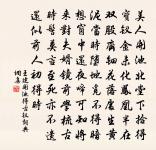 美人開池北堂下拾得
寶釵金未化鳳凰半在
雙股齊鈿花落處生黃
泥當時墮地覓不得暗
想窗中還夜啼可知將
來對夫婿鏡前學梳古
時髻莫言至死亦不遺
還似前人初得時
王建開池得古釵